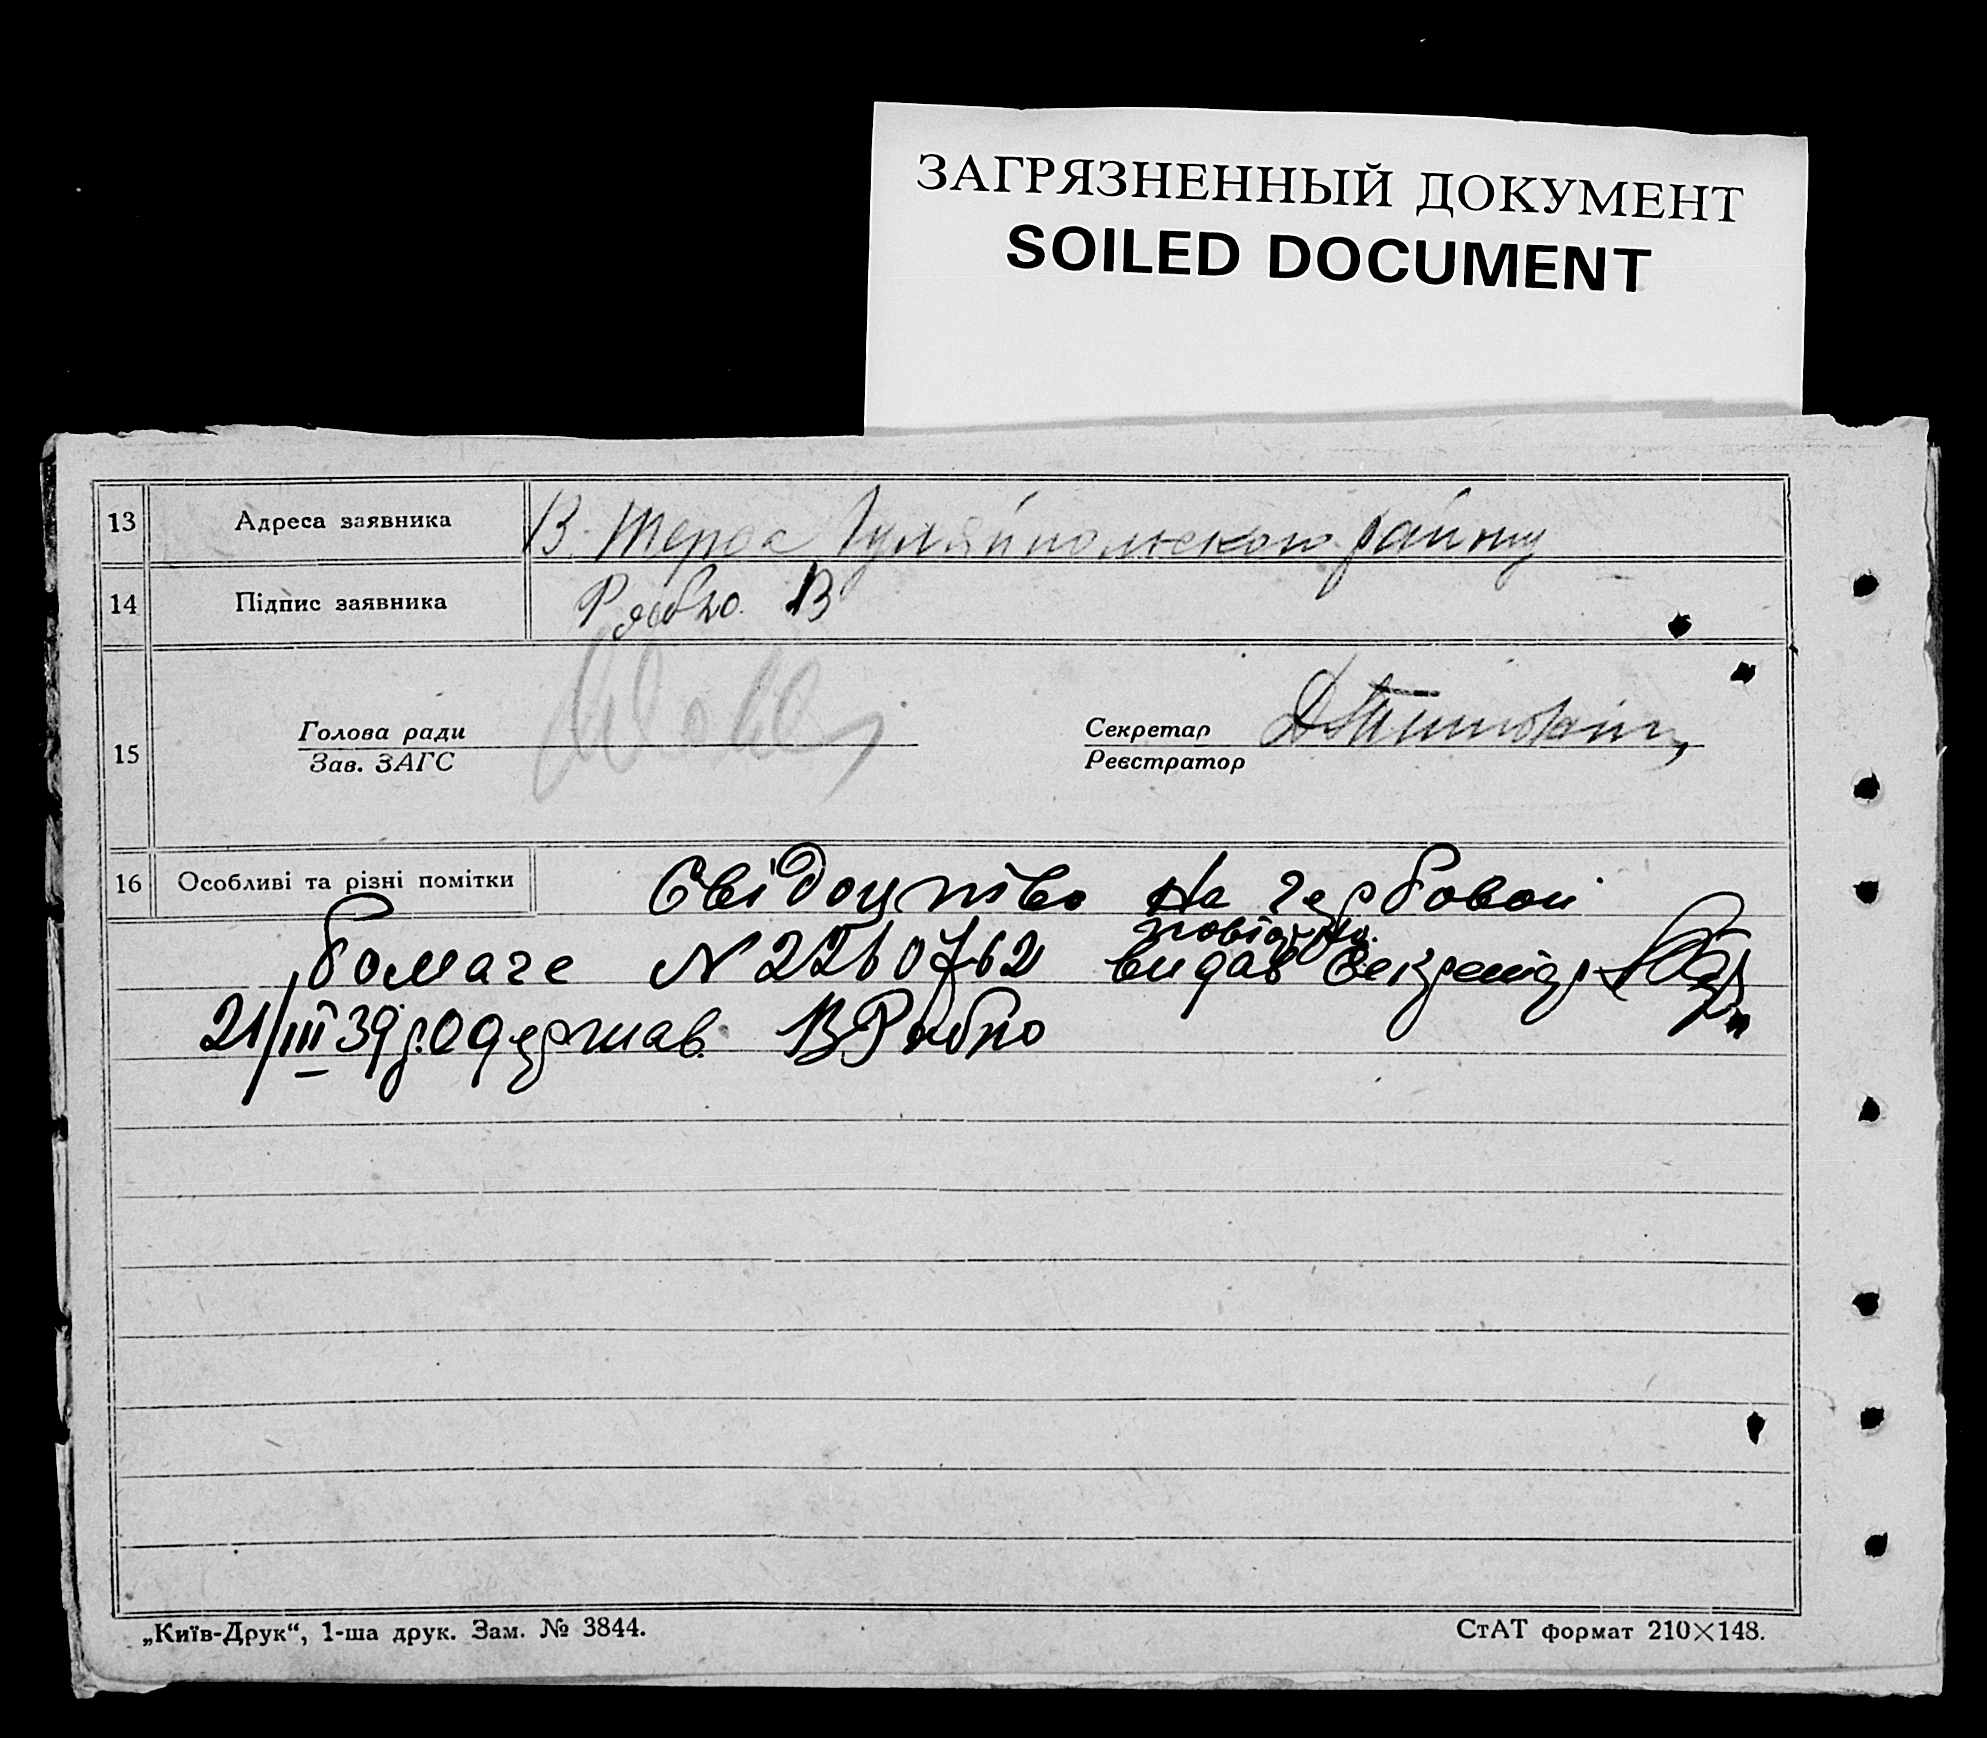 ЗАГРЯЗНЕННЫЙ ДОКУМЕНТ
SOILED DOCUMENT
13 Адреса заявника В. Терса Гуляйпольского району
14 Підпис заявника Рябко. В
15 Голова ради
Зав. ЗАГС
Секретар
Реєстратор
16 Особливі та різні помітки Свідоцтво На гербовой
бомаге N 2210762 видав Секретар
21/III 39 р. Одержав. В Рябко
„Київ-Друк“, 1-ша друк. Зам. № 3844.
СтАТ формат 210×148.